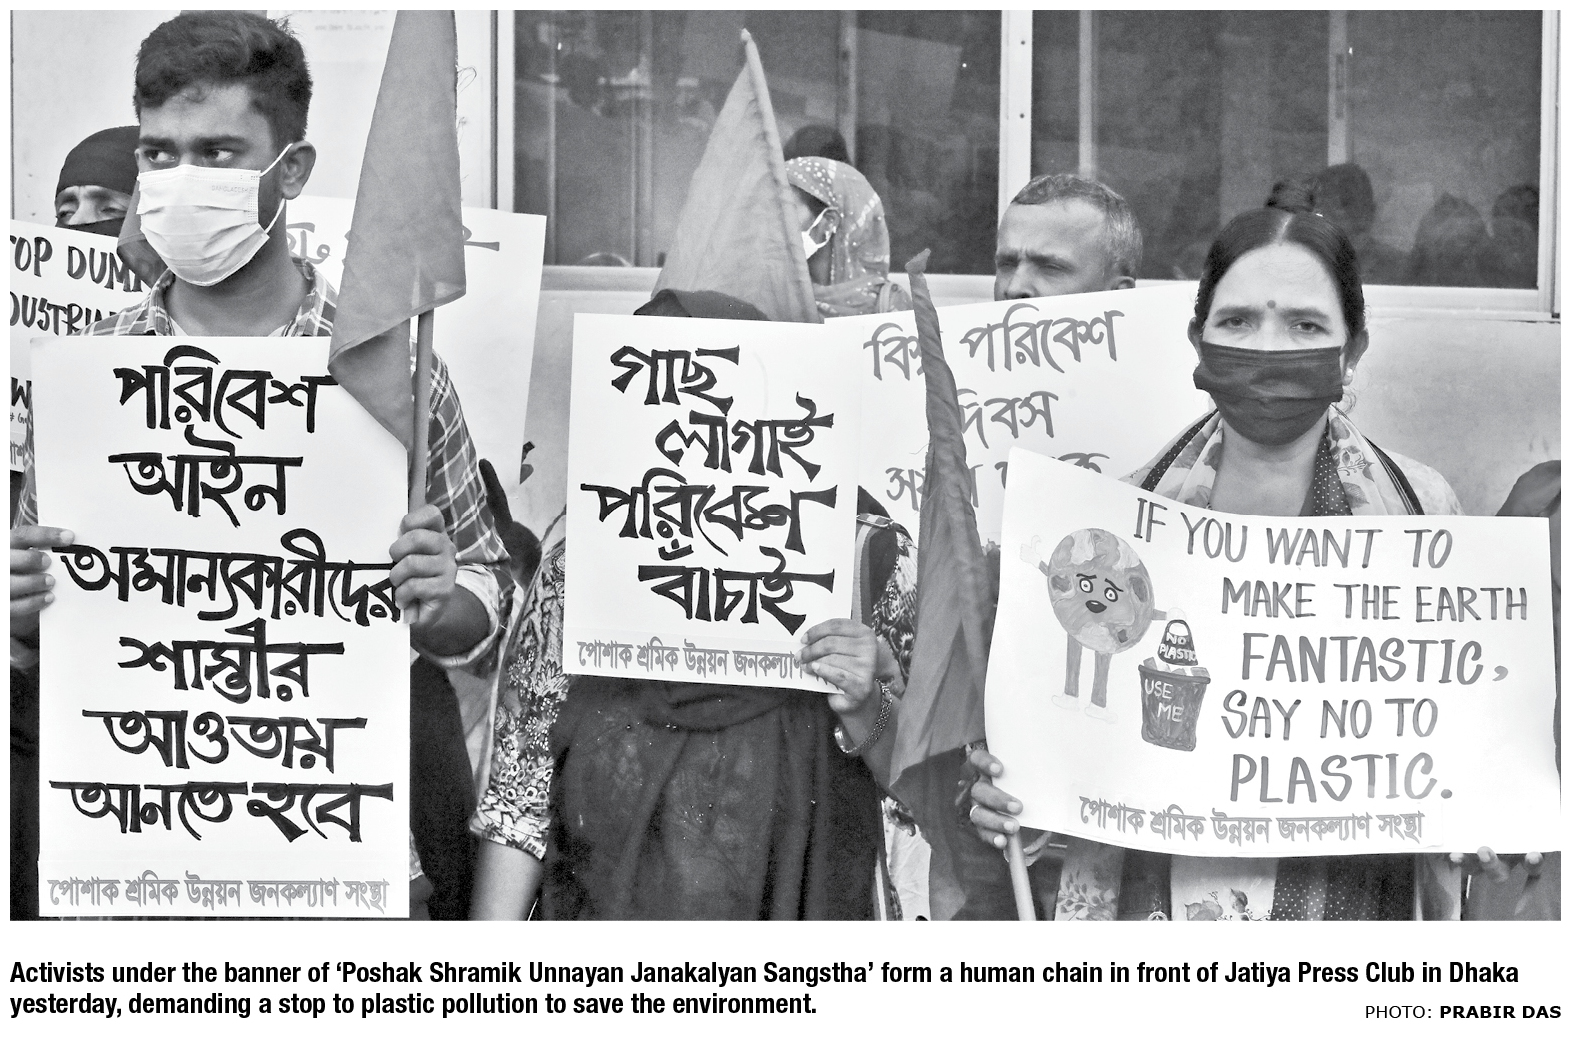 TOP DUM
DUSTRIA
পরিবেশ
আইন
অমান্যকারীদের
শাস্তীর
আওতায়
আনতে হবে
পোশাক শ্রমিক উন্নয়ন জনকল্যাণ সংস্থা
গাছ
লাগাই
পরিবেশ
বাঁচাই
পোশাক শ্রমিক উন্নয়ন জনকল্যাণ
পরিবেশ
দিবস
IF YOU WANT TO
MAKE THE EARTH
FANTASTIC,
SAY NO TO
PLASTIC.
NO
PLASTIC
USE
ME
পোশাক শ্রমিক উন্নয়ন জনকল্যাণ সংস্থা
Activists under the banner of ‘Poshak Shramik Unnayan Janakalyan Sangstha’ form a human chain in front of Jatiya Press Club in Dhaka
yesterday, demanding a stop to plastic pollution to save the environment.
PHOTO: PRABIR DAS